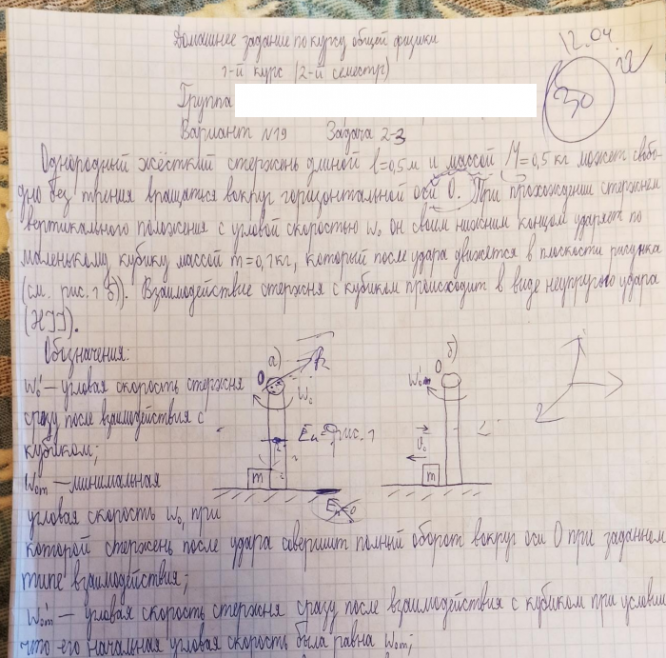 Домашнее задание по курсу общей физики
12.04
1-й курс (2-й семестр)
Группа
30
Вариант №19 Задача 2-3
Однородный жёсткий стержень длиной l=0,5м и массой M=0,5кг может свобо-
дно без трения вращаться вокруг горизонтальной оси O. При прохождении стержнем
вертикального положения с угловой скоростью ω₀ он своим нижним концом ударяет по
маленькому кубику массой m=0,1кг, который после удара движется в плоскости рисунка
(см. рис. 1 б)). Взаимодействие стержня с кубиком происходит в виде неупругого удара
(НУ).
Обозначения:
ω₀' — угловая скорость стержня
сразу после взаимодействия с
кубиком;
ω₀m — минимальная
угловая скорость ω₀, при
а)
O
ω₀'
рис. 1
m
б)
O
m
которой стержень после удара совершит полный оборот вокруг оси O при заданном
типе взаимодействия;
ω₀m' — угловая скорость стержня сразу после взаимодействия с кубиком при условии
что его начальная угловая скорость была равна ω₀m;